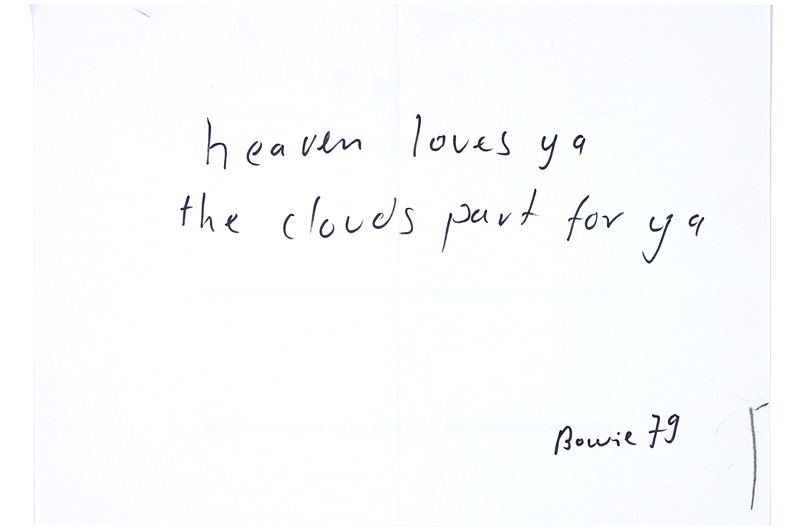 heaven loves ya
the clouds part for ya
Bowie 79